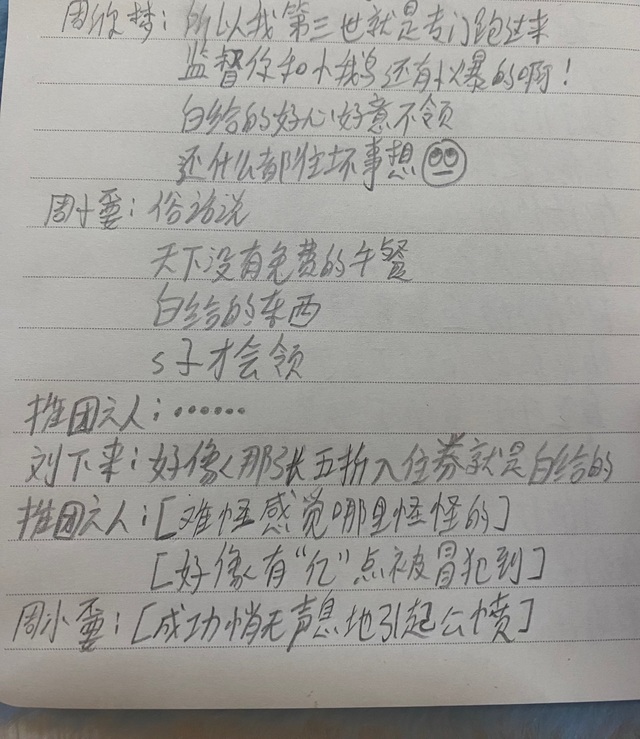 周你梦：所以我第三世就是专门跑过来
监督你和小我鸟还有小爆的啊！
白给的好心好意不领
还什么都往坏事想
周小要：俗话说
天下没有免费的午餐
白给的东西
s子才会领
推团之人：……
刘下来：好像那张五折入住券就是白给的
推团之人：[难怪感觉哪里怪怪的]
[好像有“亿”点被冒犯到]
周小要：[成功悄无声息地引起公愤]